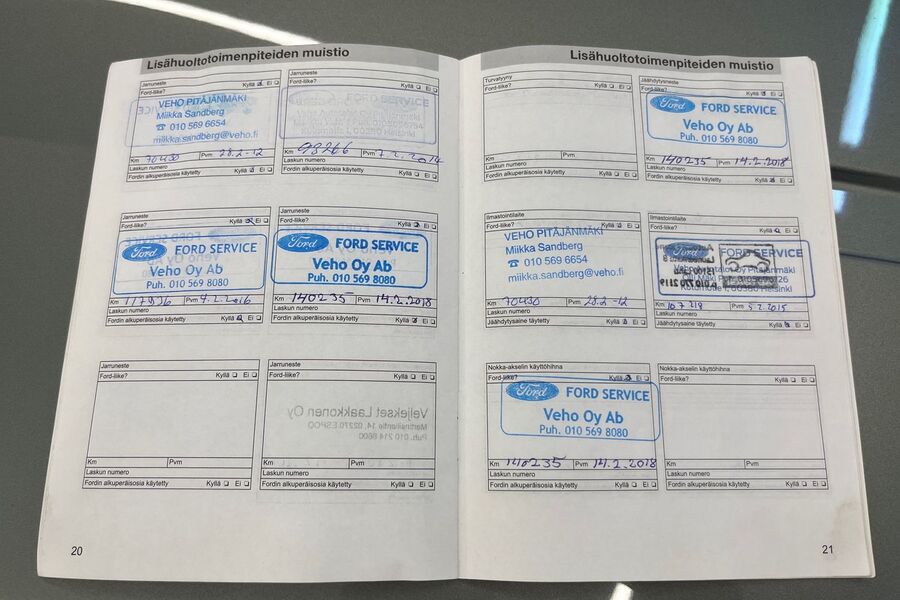 Lisähuoltotoimenpiteiden muistio
Jarruneste
Ford-liike? Kyllä Ei
VEHO PITÄJÄNMÄKI
Miikka Sandberg
☎ 010 569 6654
miikka.sandberg@veho.fi
Km 70430 Pvm 28.2-12
Laskun numero
Fordin alkuperäisosia käytetty Kyllä Ei
Jarruneste
Ford-liike? Kyllä Ei
FORD SERVICE
Km 98266 Pvm 7.2.2014
Laskun numero
Fordin alkuperäisosia käytetty Kyllä Ei
Jarruneste
Ford-liike? Kyllä Ei
Ford FORD SERVICE
Veho Oy Ab
Puh. 010 569 8080
Km 117936 Pvm 4.2.2016
Laskun numero
Fordin alkuperäisosia käytetty Kyllä Ei
Jarruneste
Ford-liike? Kyllä Ei
Ford FORD SERVICE
Veho Oy Ab
Puh. 010 569 8080
Km 140235 Pvm 14.2.2018
Laskun numero
Fordin alkuperäisosia käytetty Kyllä Ei
Jarruneste
Ford-liike? Kyllä Ei
Km Pvm
Laskun numero
Fordin alkuperäisosia käytetty Kyllä Ei
Jarruneste
Ford-liike? Kyllä Ei
Veljekset Laakkonen Oy
Martinsillantie 14, 02270 ESPOO
Puh. 010 214 8600
Km Pvm
Laskun numero
Fordin alkuperäisosia käytetty Kyllä Ei
20
Lisähuoltotoimenpiteiden muistio
Turvatyyny
Ford-liike? Kyllä Ei
Km Pvm
Laskun numero
Fordin alkuperäisosia käytetty Kyllä Ei
Jäähdytysneste
Ford-liike? Kyllä Ei
Ford FORD SERVICE
Veho Oy Ab
Puh. 010 569 8080
Km 140235 Pvm 14.2.2018
Laskun numero
Fordin alkuperäisosia käytetty Kyllä Ei
Ilmastointilaite
Ford-liike? Kyllä Ei
VEHO PITÄJÄNMÄKI
Miikka Sandberg
☎ 010 569 6654
miikka.sandberg@veho.fi
Km 70430 Pvm 28.2-12
Laskun numero
Jäähdytysaine täytetty Kyllä Ei
Ilmastointilaite
Ford-liike? Kyllä Ei
Ford FORD SERVICE
Km Pvm 5.2.2015
Laskun numero
Jäähdytysaine täytetty Kyllä Ei
Nokka-akselin käyttöhihna
Ford-liike? Kyllä Ei
Ford FORD SERVICE
Veho Oy Ab
Puh. 010 569 8080
Km 140235 Pvm 14.2.2018
Laskun numero
Fordin alkuperäisosia käytetty Kyllä Ei
Nokka-akselin käyttöhihna
Ford-liike? Kyllä Ei
Km Pvm
Laskun numero
Fordin alkuperäisosia käytetty Kyllä Ei
21